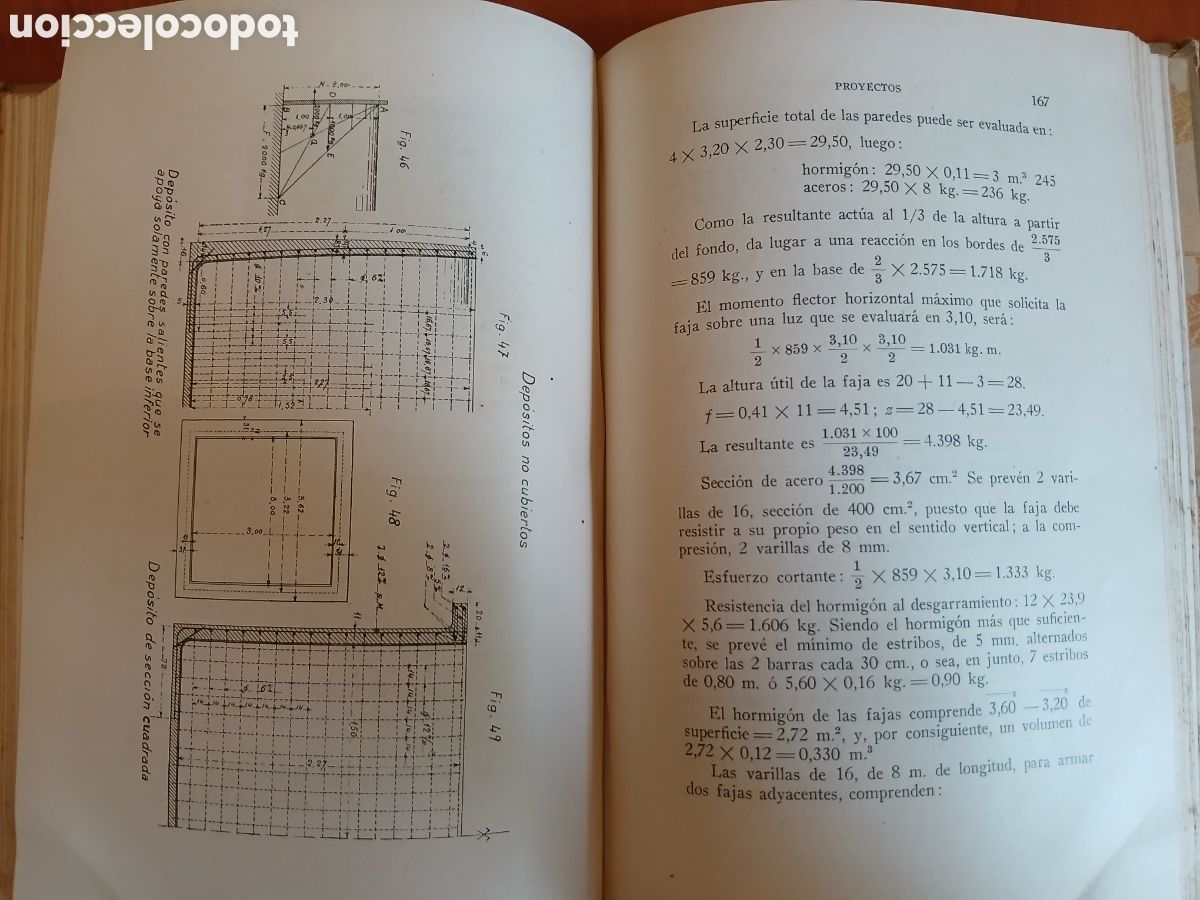 todocoleccion
Fig. 46
H = 2,00
F = 2000 kg.
Depósito con paredes salientes que se
apoya solamente sobre la base inferior
Fig. 47
2.27
1,27
1,00
2,30
2,27
1,52
Depósitos no cubiertos
Fig. 48
3,00
3,22
3,62
3,00
Fig. 49
1,50
2.27
Depósito de sección cuadrada
PROYECTOS
167
La superficie total de las paredes puede ser evaluada en:
4 × 3,20 × 2,30 = 29,50, luego:
hormigón: 29,50 × 0,11 = 3 m.³ 245
aceros: 29,50 × 8 kg. = 236 kg.
Como la resultante actúa al 1/3 de la altura a partir
del fondo, da lugar a una reacción en los bordes de 2.575/3
= 859 kg., y en la base de 2/3 × 2.575 = 1.718 kg.
El momento flector horizontal máximo que solicita la
faja sobre una luz que se evaluará en 3,10, será:
1/2 × 859 × 3,10/2 × 3,10/2 = 1.031 kg. m.
La altura útil de la faja es 20 + 11 — 3 = 28.
f = 0,41 × 11 = 4,51; z = 28 — 4,51 = 23,49.
La resultante es 1.031 × 100/23,49 = 4.398 kg.
Sección de acero 4.398/1.200 = 3,67 cm.² Se prevén 2 vari-
llas de 16, sección de 400 cm.², puesto que la faja debe
resistir a su propio peso en el sentido vertical; a la com-
presión, 2 varillas de 8 mm.
Esfuerzo cortante: 1/2 × 859 × 3,10 = 1.333 kg.
Resistencia del hormigón al desgarramiento: 12 × 23,9
× 5,6 = 1.606 kg. Siendo el hormigón más que suficien-
te, se prevé el mínimo de estribos, de 5 mm. alternados
sobre las 2 barras cada 30 cm., o sea, en junto, 7 estribos
de 0,80 m. ó 5,60 × 0,16 kg. = 0,90 kg.
El hormigón de las fajas comprende 3,60² — 3,20² de
superficie = 2,72 m.², y, por consiguiente, un volumen de
2,72 × 0,12 = 0,330 m.³
Las varillas de 16, de 8 m. de longitud, para armar
dos fajas adyacentes, comprenden: